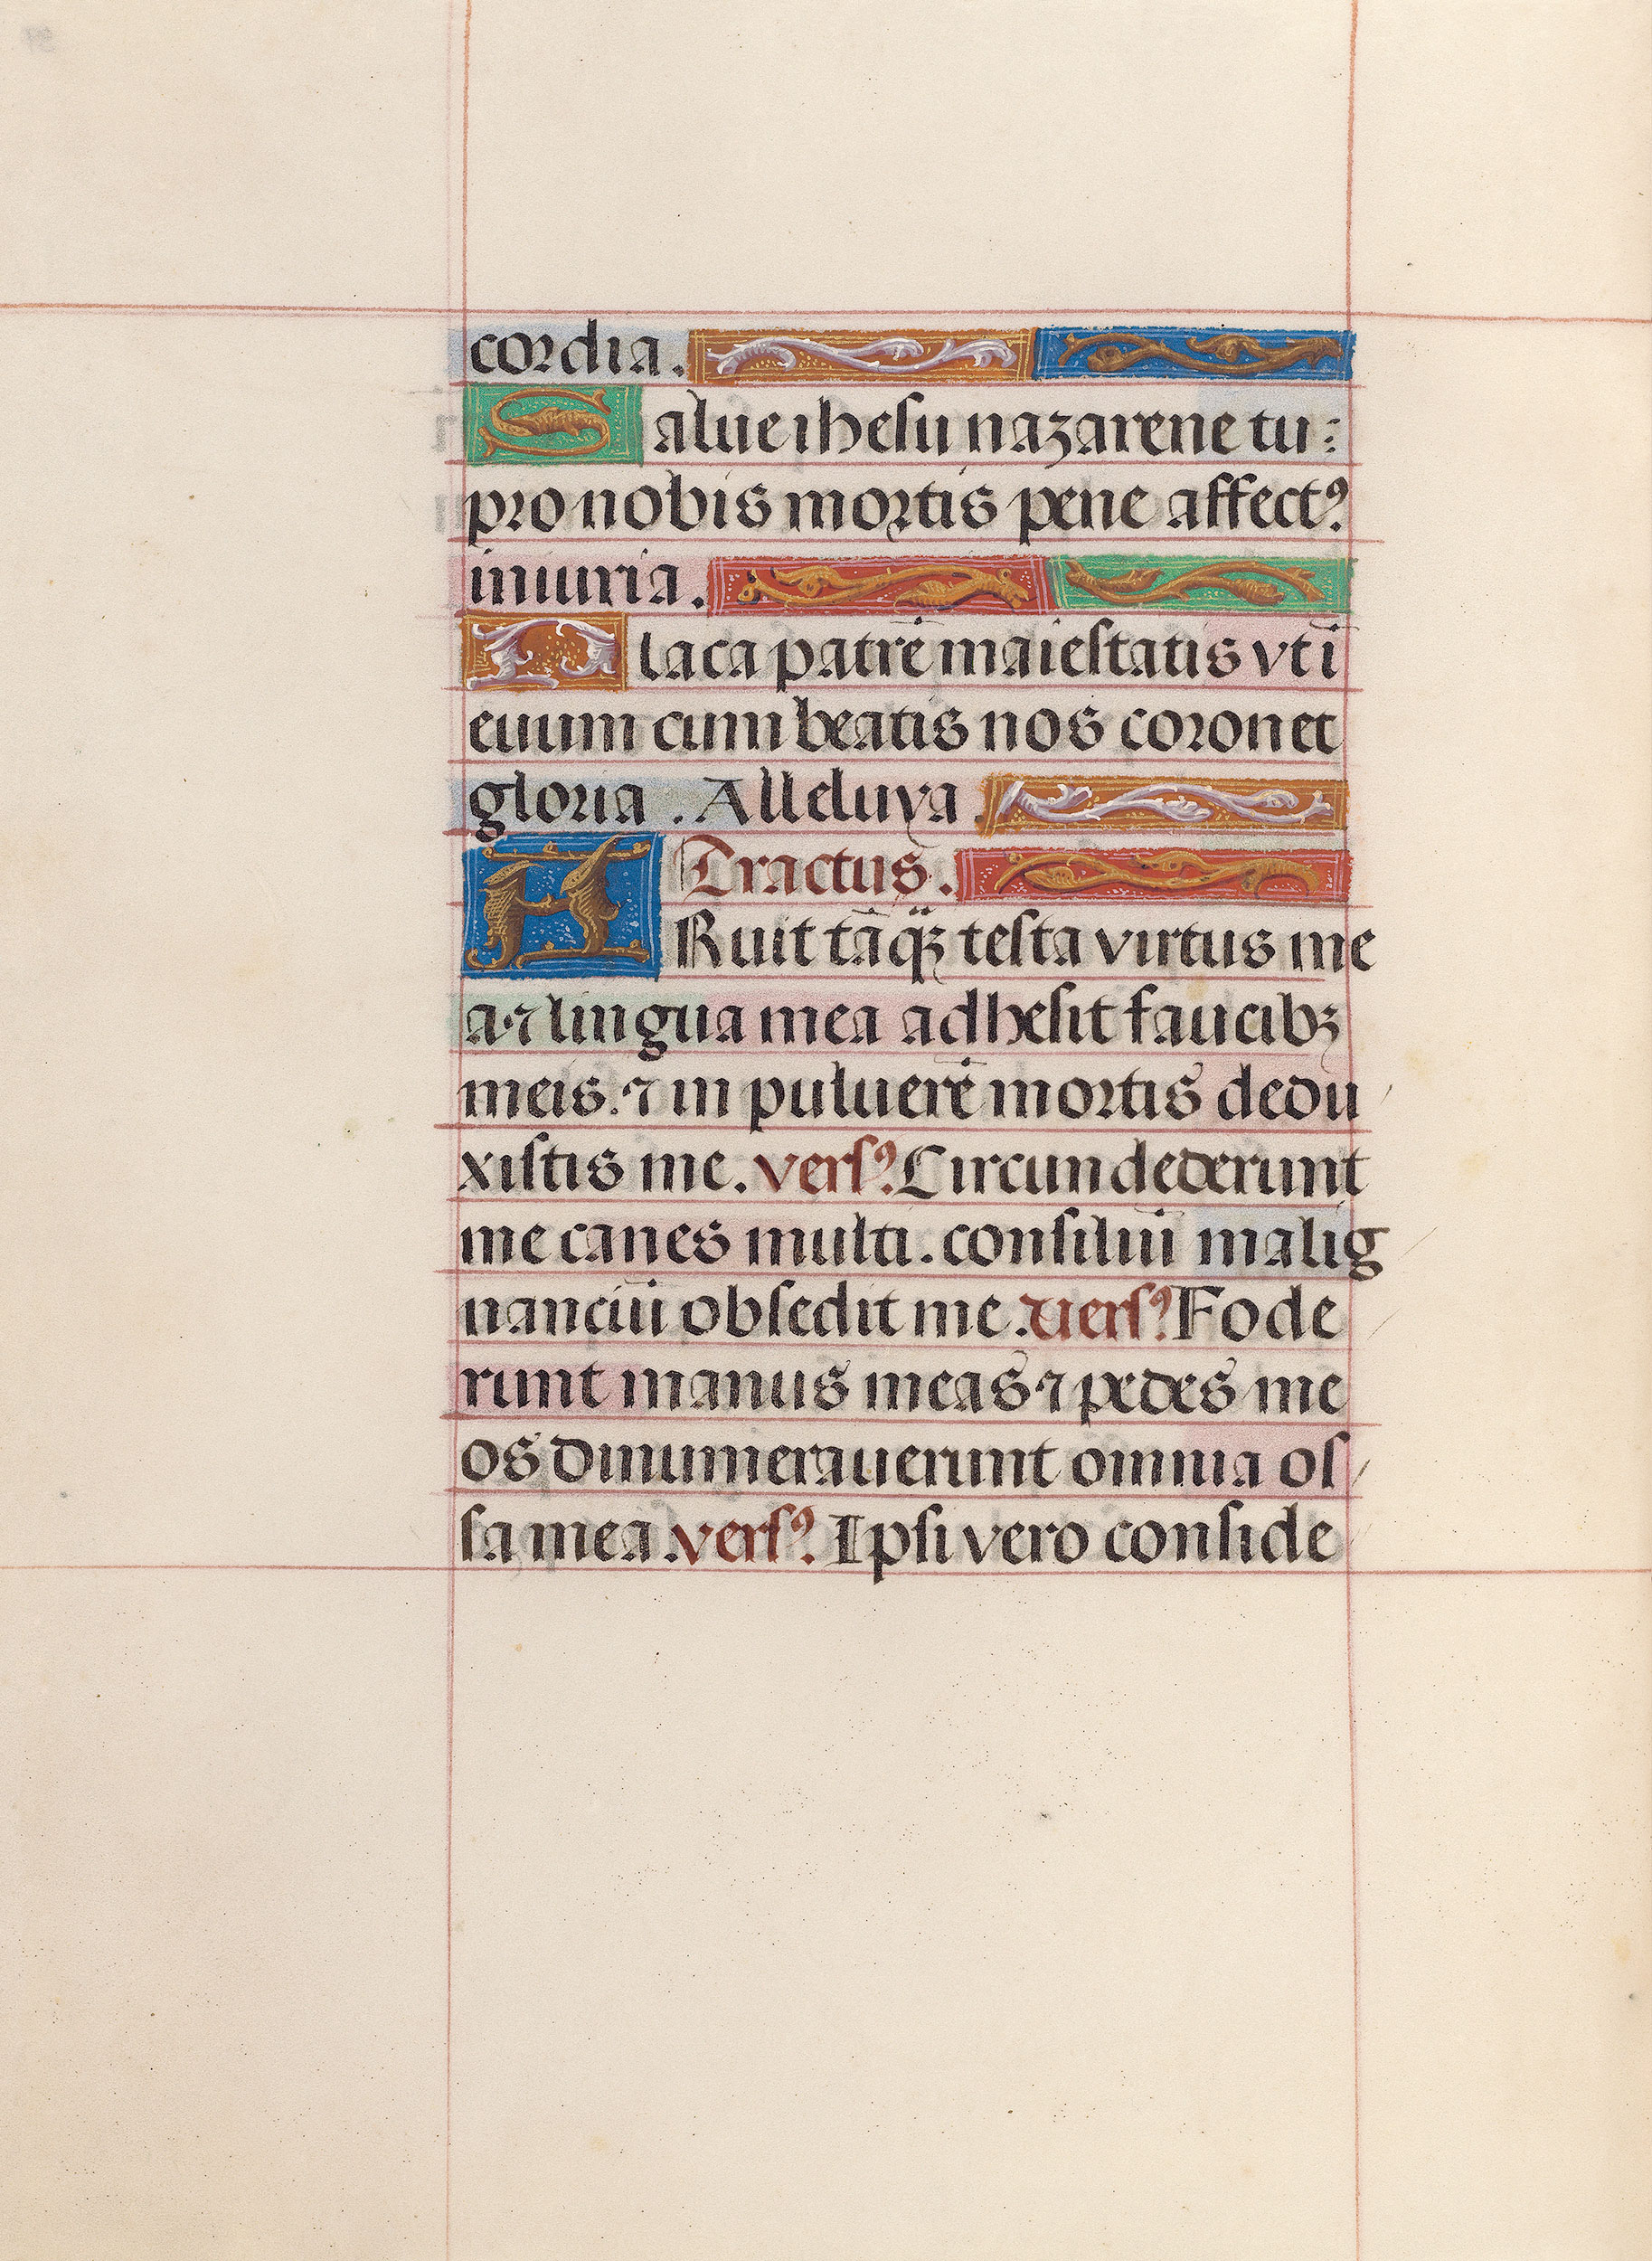 cordia.
Salue ihesu nazarene tu:
pro nobis mortis pene affectꝰ
iniuria.
Placa patrē maiestatis vt ī
euum cum beatis nos coronet
gloria. Alleluya.
Tractus.
ARuit tāq̄ꝫ testa virtus me
a. ⁊ lingua mea adhesit faucibꝫ
meis. ⁊ in puluerē mortis dedu
xistis me. versꝰ. Circundederunt
me canes multi. consiliū malig
nanciū obsedit me. versꝰ. Fode
runt manus meas ⁊ pedes me
os dinumerauerunt omnia os
sa mea. versꝰ. Ipsi vero conside